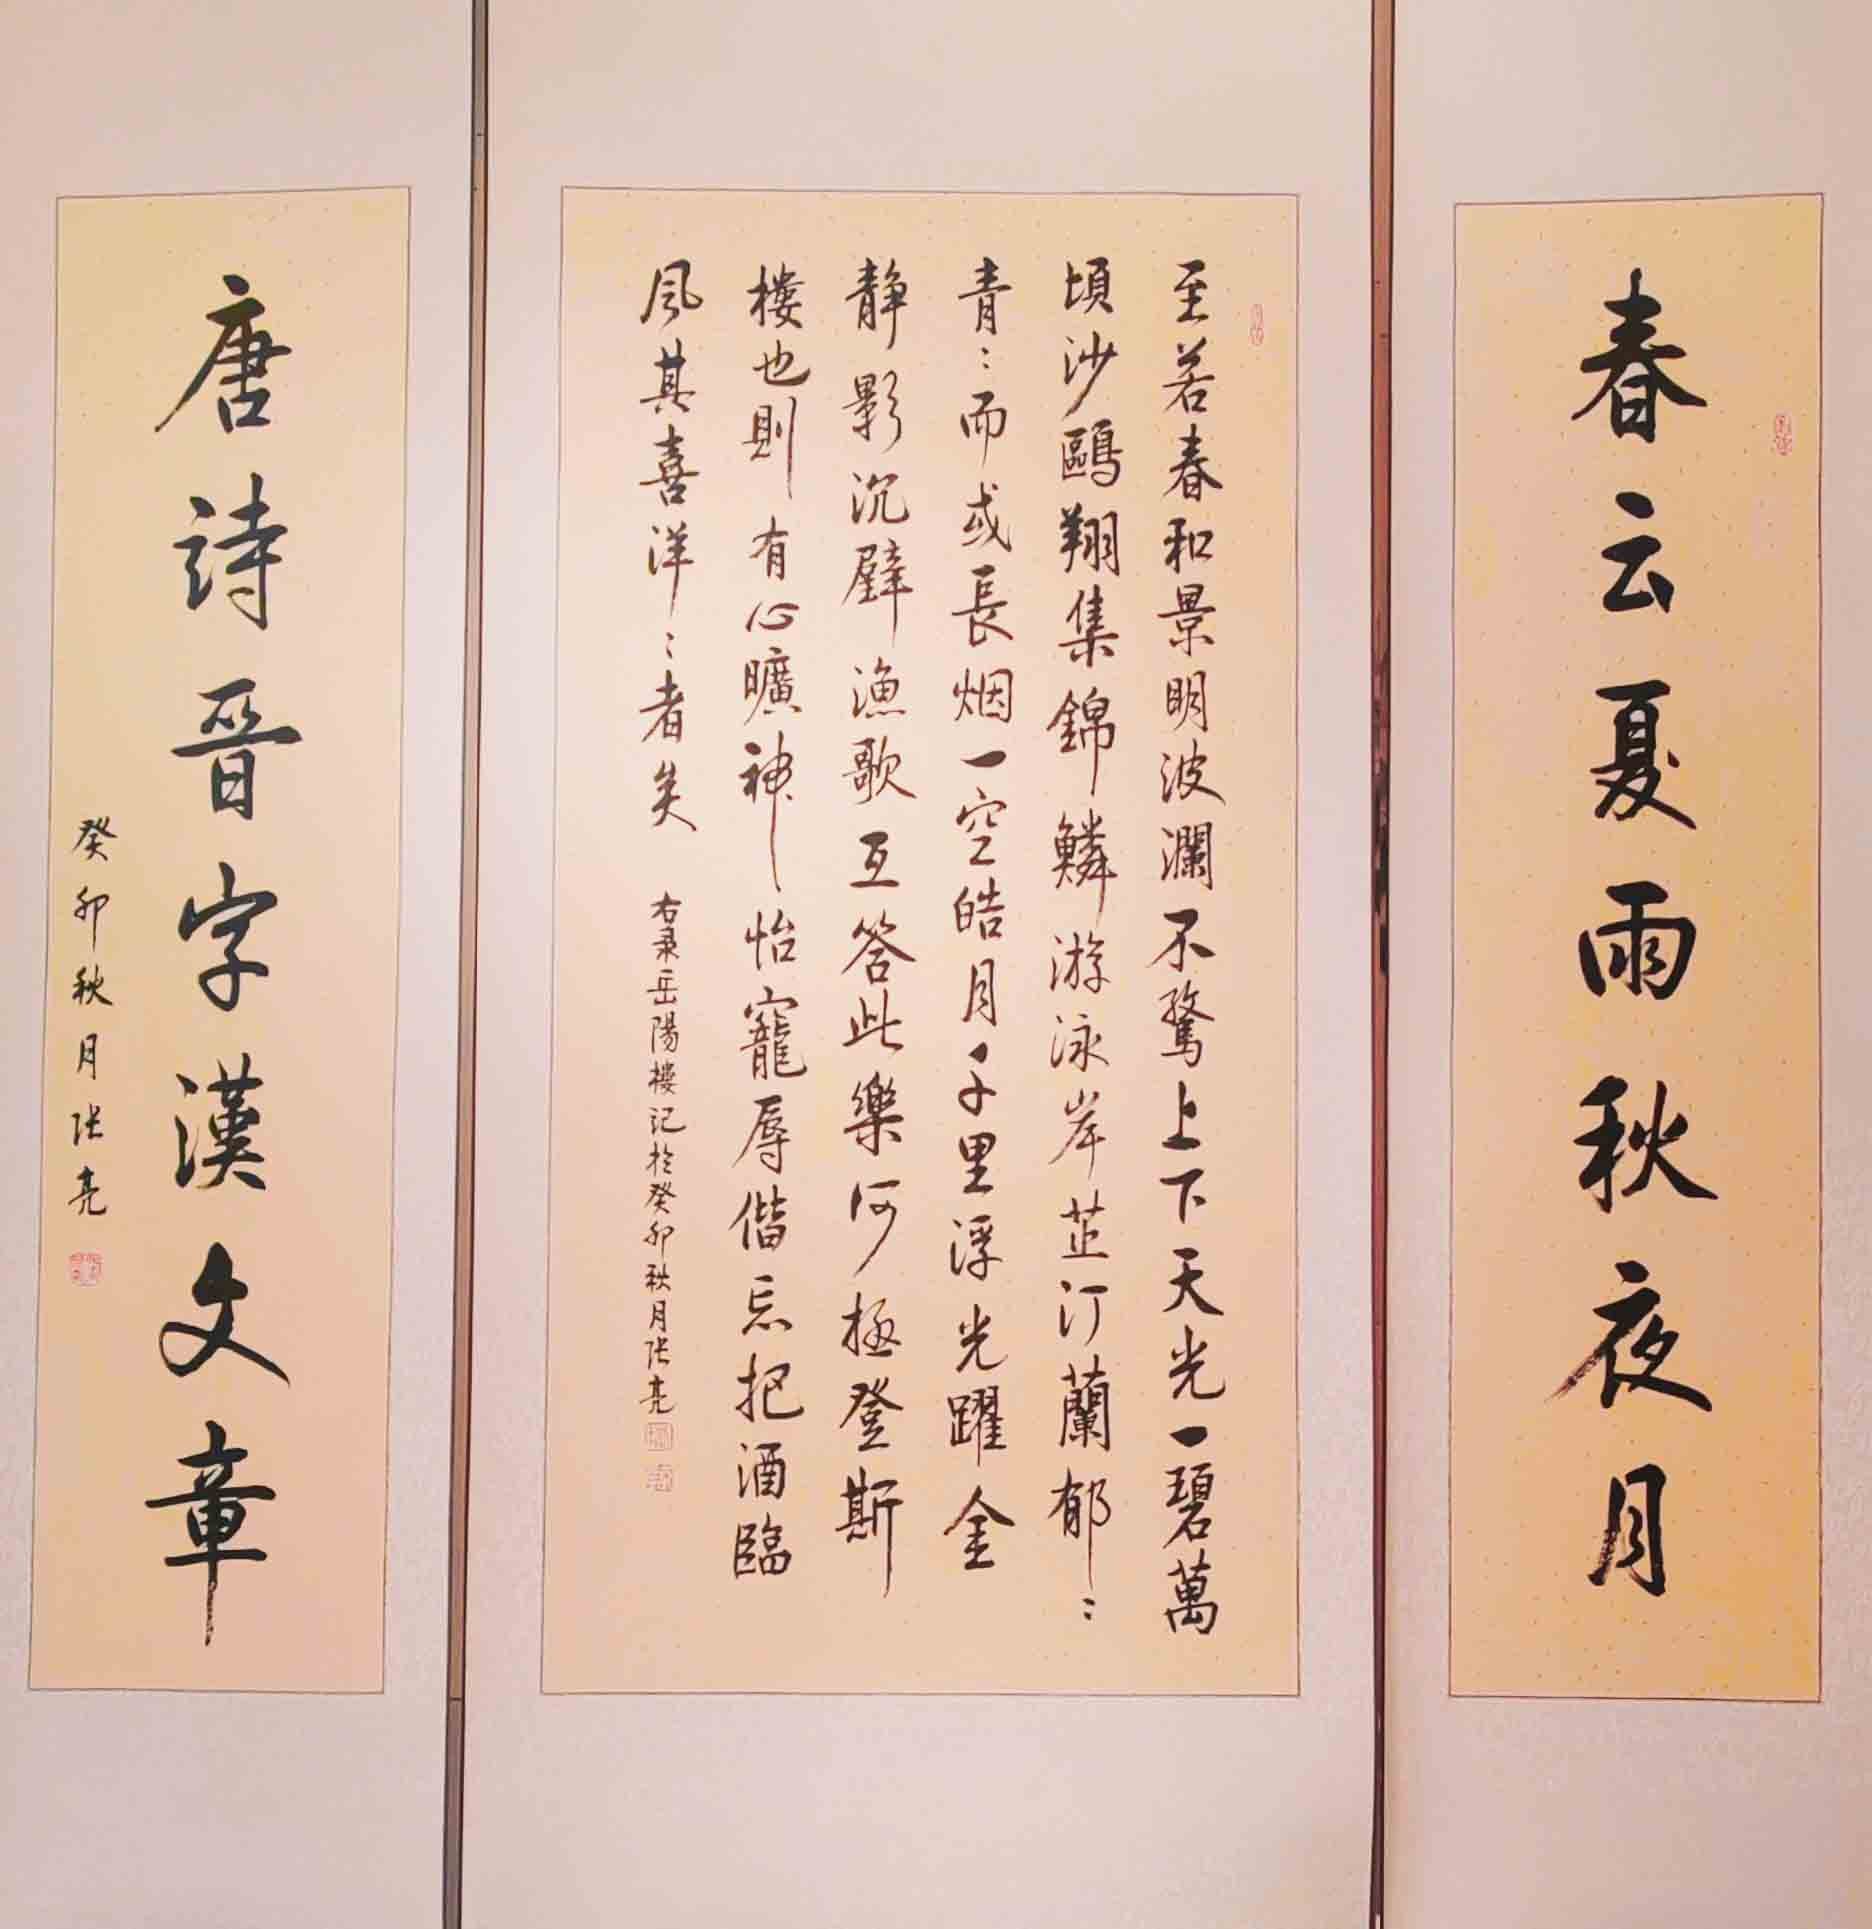 春云夏雨秋夜月
至若春和景明波瀾不驚上下天光一碧萬
頃沙鷗翔集錦鱗游泳岸芷汀蘭郁〻
青〻而或長烟一空皓月千里浮光躍金
静影沉璧漁歌互答此樂何極登斯
樓也則有心曠神怡寵辱偕忘把酒臨
風其喜洋〻者矣
右录岳陽樓记於癸卯秋月张亮
唐詩晉字漢文章
癸卯秋月张亮